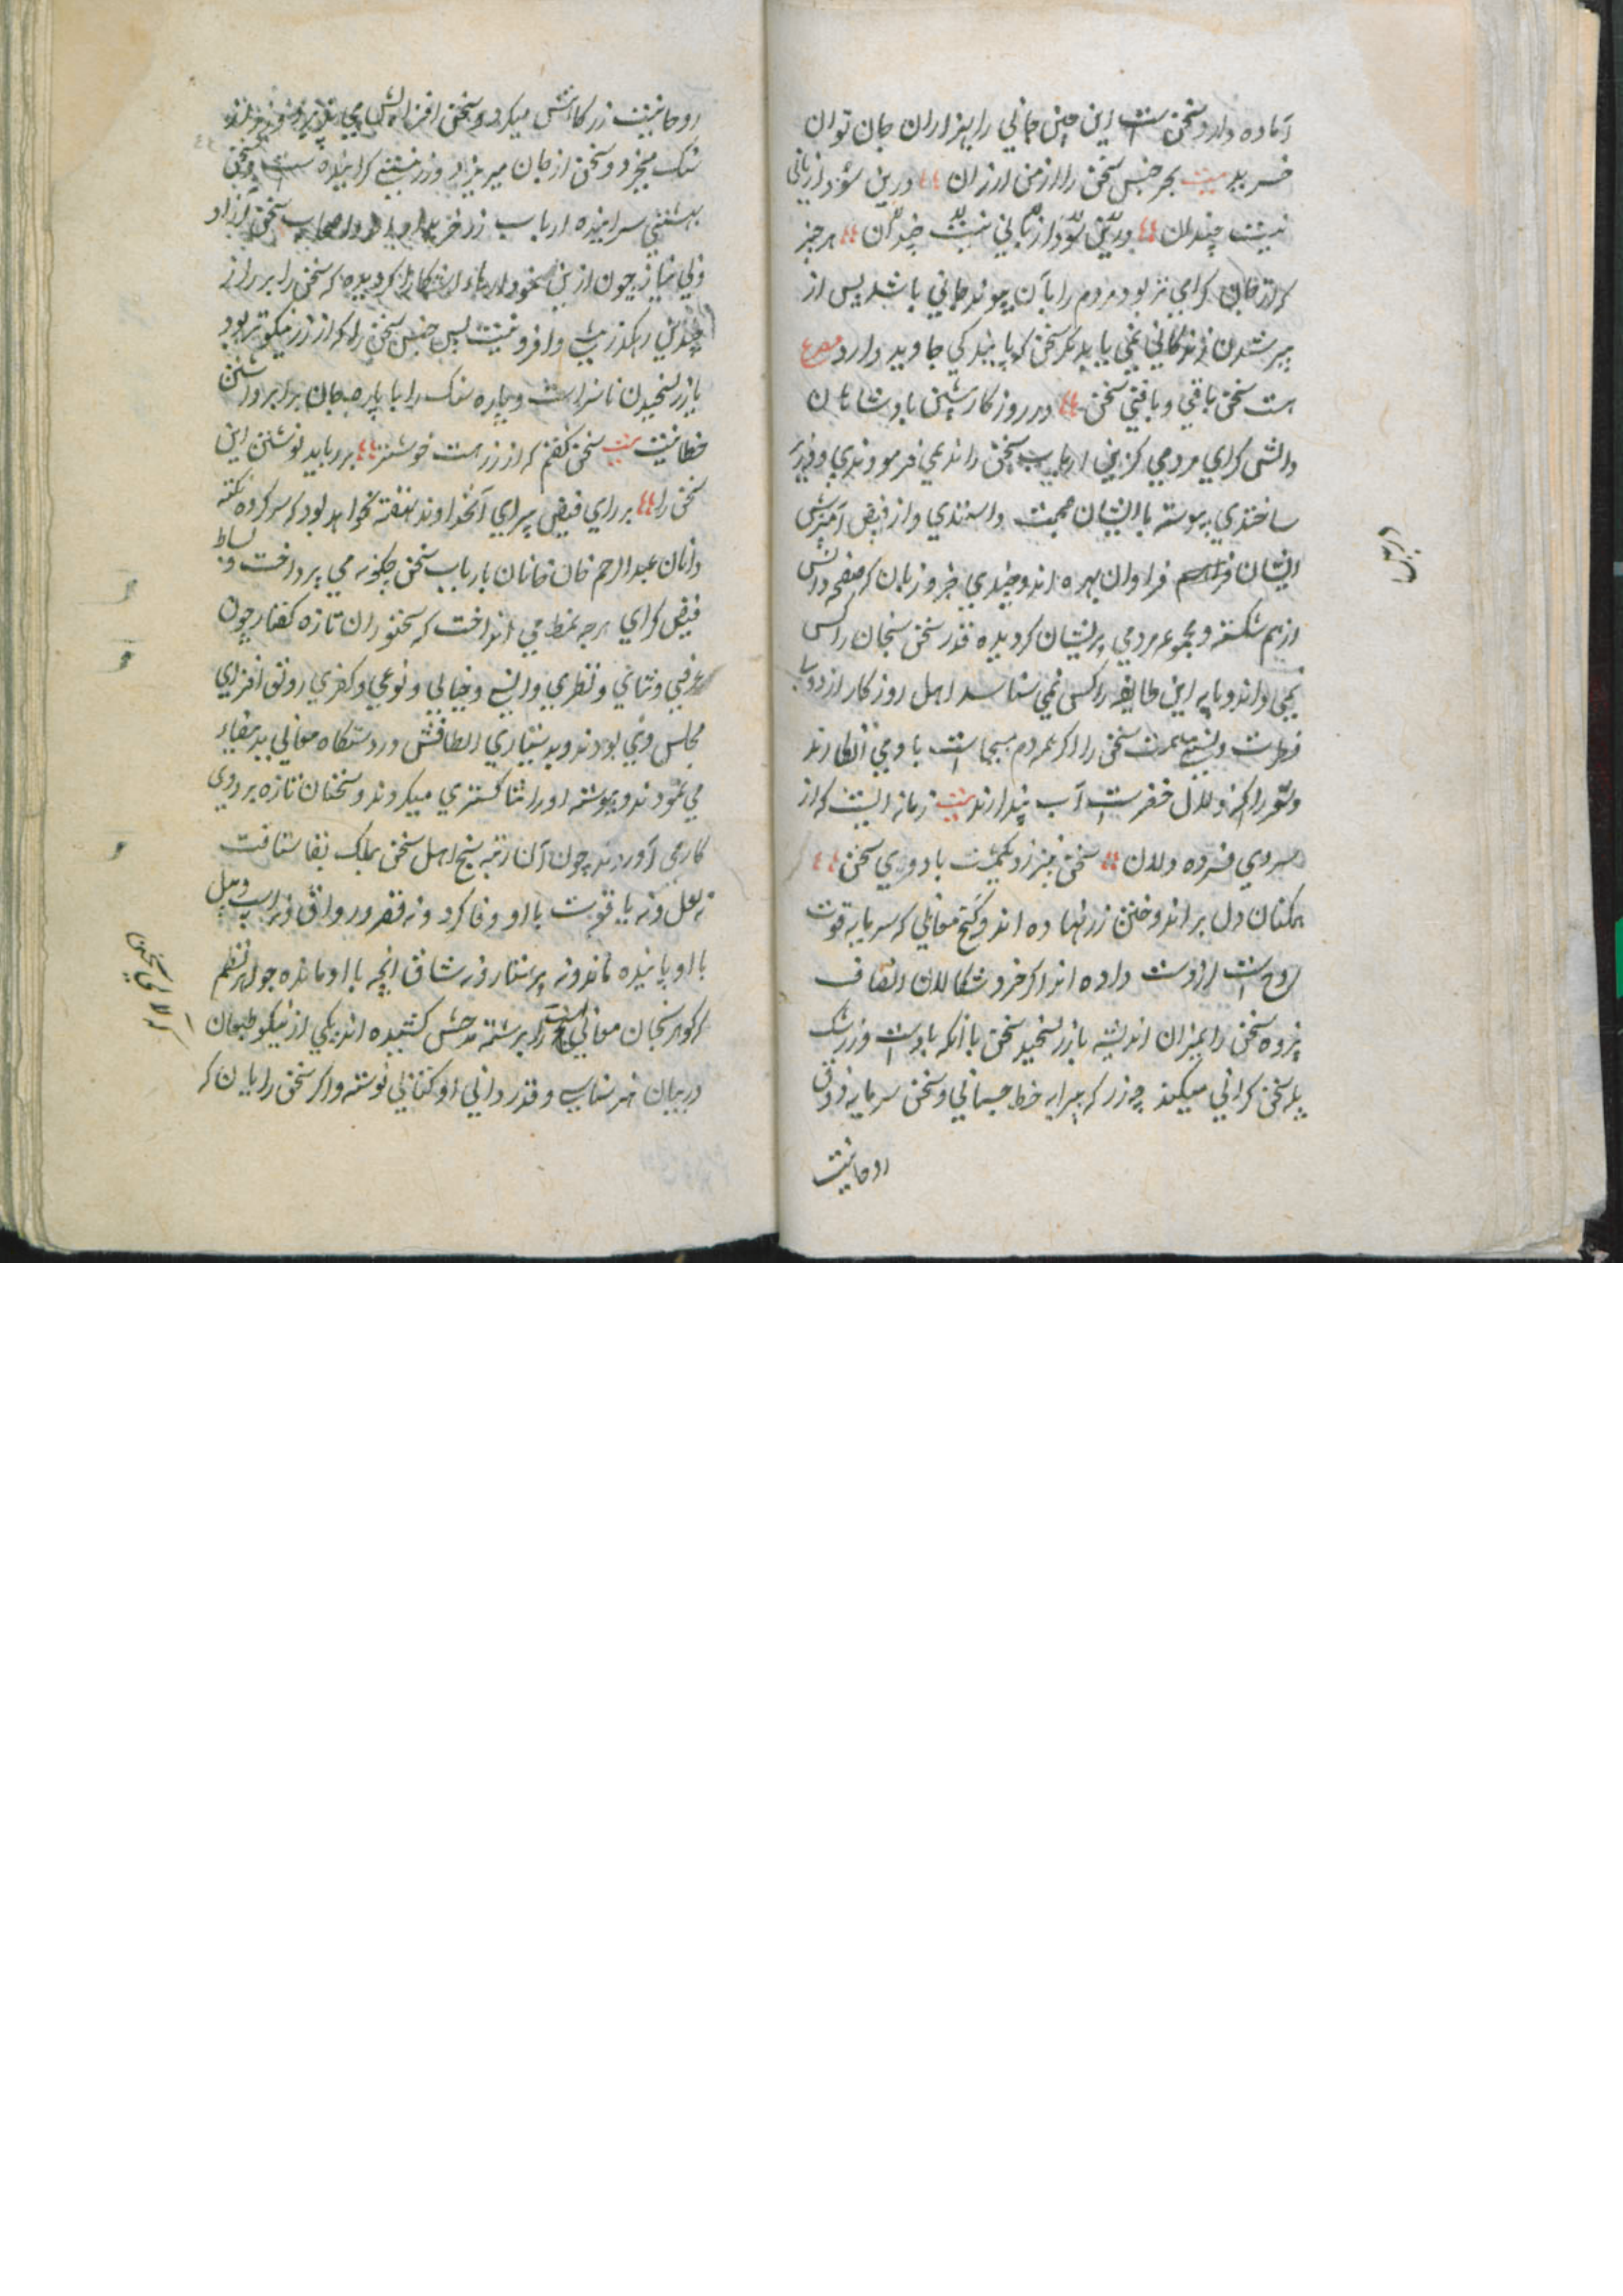 آماده دارد سخن است این جنس جانی را بهزاران جان توان
خرید بیت بجز جنس سخن را از من ارزان درین سودا زیانی
نیست چندان درین سودا زیانی نیست چندان هر چیز
که از جان کرامی تر بود مردم را بآن پیوند جانی باشد پس از
سپر شدن زندکانی نمی باید مکر سخن که پایندکی جاوید دارد مصرع
هست سخن باقی و باقی سخن در روزکار پیشین بادشاهان
دانش کرای مردمی کزین ارباب سخن را ندیمی فرمودندی و وزیر
ساختندی پیوسته با ایشان صحبت داشتندی و از فیض آمیزش
ایشان فراوان بهره اندوختندی جز و زبان که صفحه دانش
از هم شکسته و مجموعه مردمی پریشان کردیده قدر سخن سنجان را کس
نمی داند و پایه این طایفه را کس نمی شناسد اهل روزکار از دون
فطرت و پستی همت سخن را اکر همه دم مسیحا است بادی انکارند
و شعر را اکر زلال خضر است آب پندارند بیت زمانه ایست که از
سردی فسرده دلان سخن نیرزد یکمشت باد وری سخن
همکنان دل بر اندوختن زر نهاده اند و کنج معانی که سرمایه قوت
روح است از دست داده اند اکر خرد سکالان انصاف
پژوه سخن را بمیزان اندیشه بازر سنجند سخن با آنکه باد است و زر سنک
پله سخن کرانی میکند چه زر که پیرایه حظ جسمانی و سخن سرمایه ذوق
روحانیت
روحانیت زر کاهش میکرد و سخن افزایش می پذیرد و زر از
سنک میخیزد و سخن از جان میریزد و زر نشینی کراینده است و سخن
بهشتی سراینده ارباب زر خریدار و اصحاب سخن آزاد
و بی نیاز چون ازین نمودارها آشکارا کردیده که سخن را بر زر از
چندین رهکذر بیش و افزونیست پس جنس سخن را که از زر نیکوتر بود
بازر سنجیدن ناسزاست و پاره سنک را با پارچه جان برابر داشتن
خطاست بیت سخن کفتم که از زر هست خوشتر بزر باید نوشتن این
سخن را بر رای فیض پیرای آنخداوند نهفته نخواهد بود که سر کرده نکته
دانان عبدالرحیم خان خانان بارباب سخن چکونه می پرداخت و بساط
فیض کرای بر چه نمط می انداخت که سخنوران تازه کفتار چون
عرفی و ثنائی و نظیری و انیسی و خیالی و نوعی و کفری رونق افزای
مجلس وی بودند و بدستیاری الطافش در دستکاه معانی ید بیضاء
می نمودند و پیوسته او را ثنا کستری میکردند و سخنان تازه بر روی
کار می آوردند چون آن رتبه سنج اهل سخن بملک بقا شتافت
نه لعل و نه یاقوت با او وفا کرد و نه قصر و رواق و نه اسپ و پیل
با او پاینده ماند و نه پرستار و نه شاق آنچه با او مانده جواهر نظم
که کوهر سنجان معانی سنج برشته مدحش کشیده اند یکی از نیکو طبعان
در بیان هنر شناسی و قدر دانی او کتابی نوشته و اکر سخن را پایان که